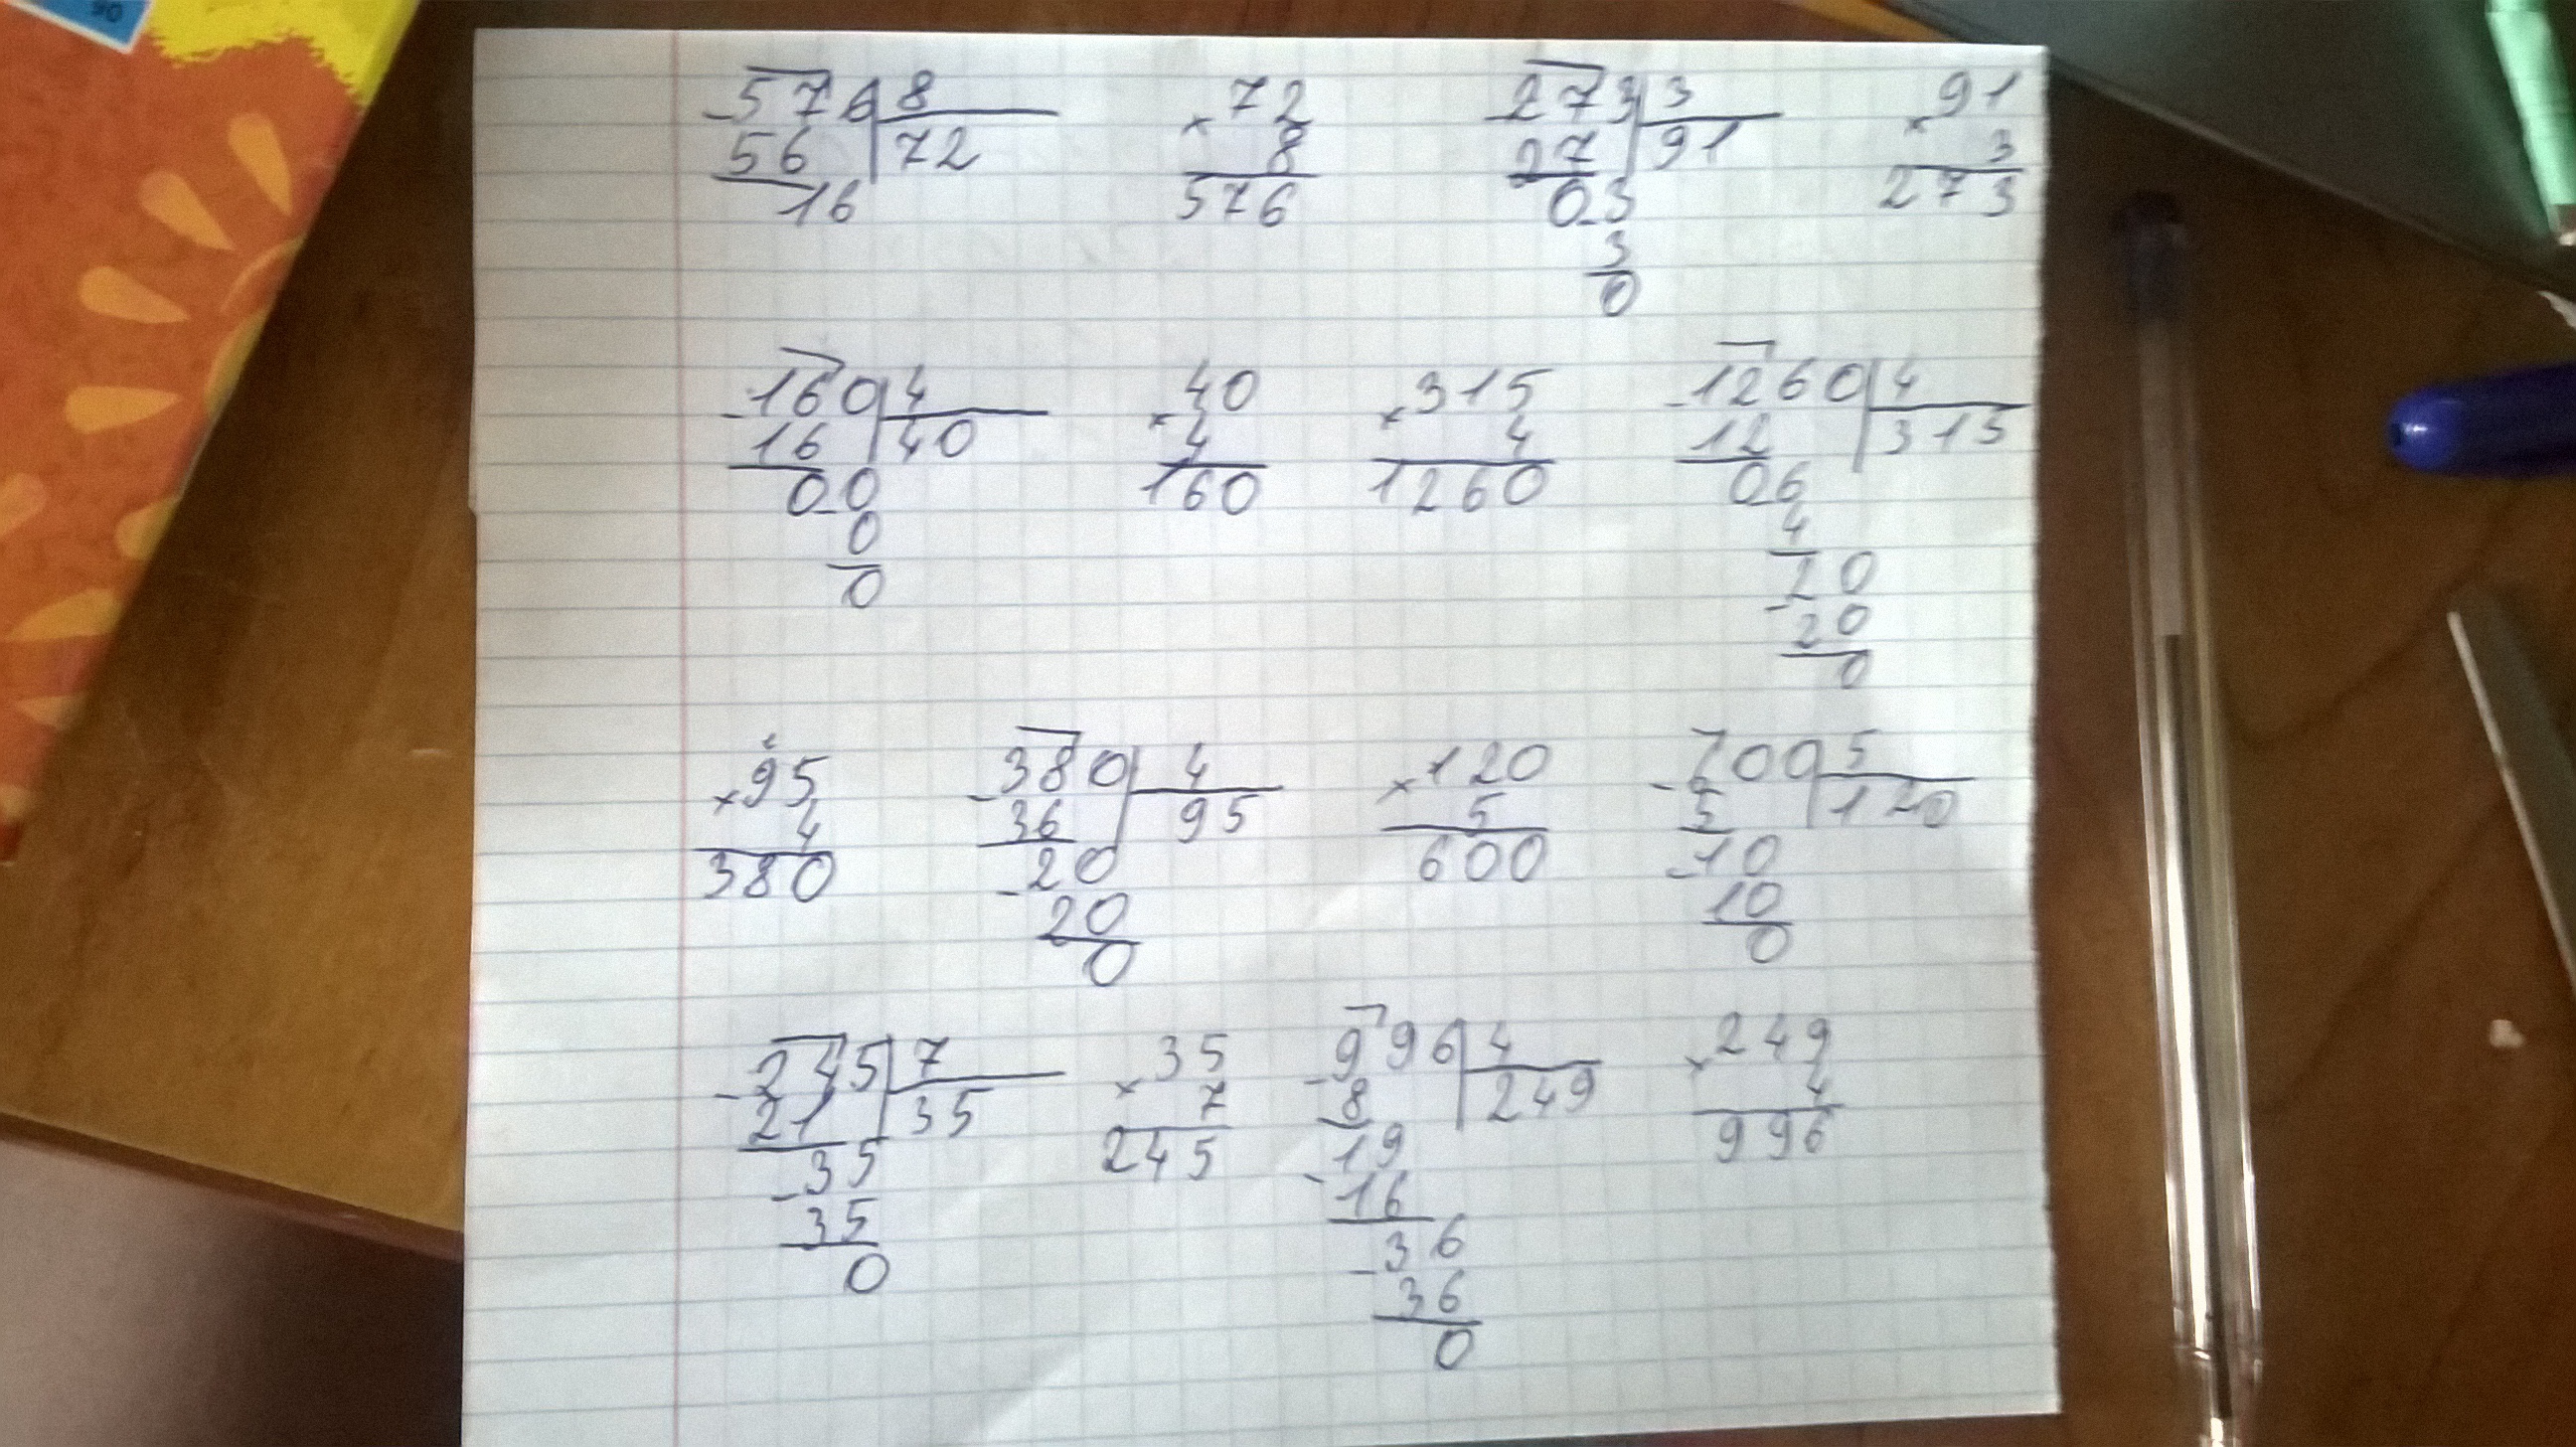 06
-576|8 ×72 -273|3 ×91
56 |72 8 27 |91 3
16 576 0-3 273
3
0
-160|4 ×40 ×315 -1260|4
16 |40 4 4 12 |315
0-0 160 1260 06
0 4
0 20
-20
0
×95 -380|4 ×120 -700|5
4 36 |95 5 5 |120
380 -20 600 -10
20 10
0 0
-245|7 ×35 -996|4 ×249
21 |35 7 8 |249 4
-35 245 -19 996
35 16
0 -36
36
0